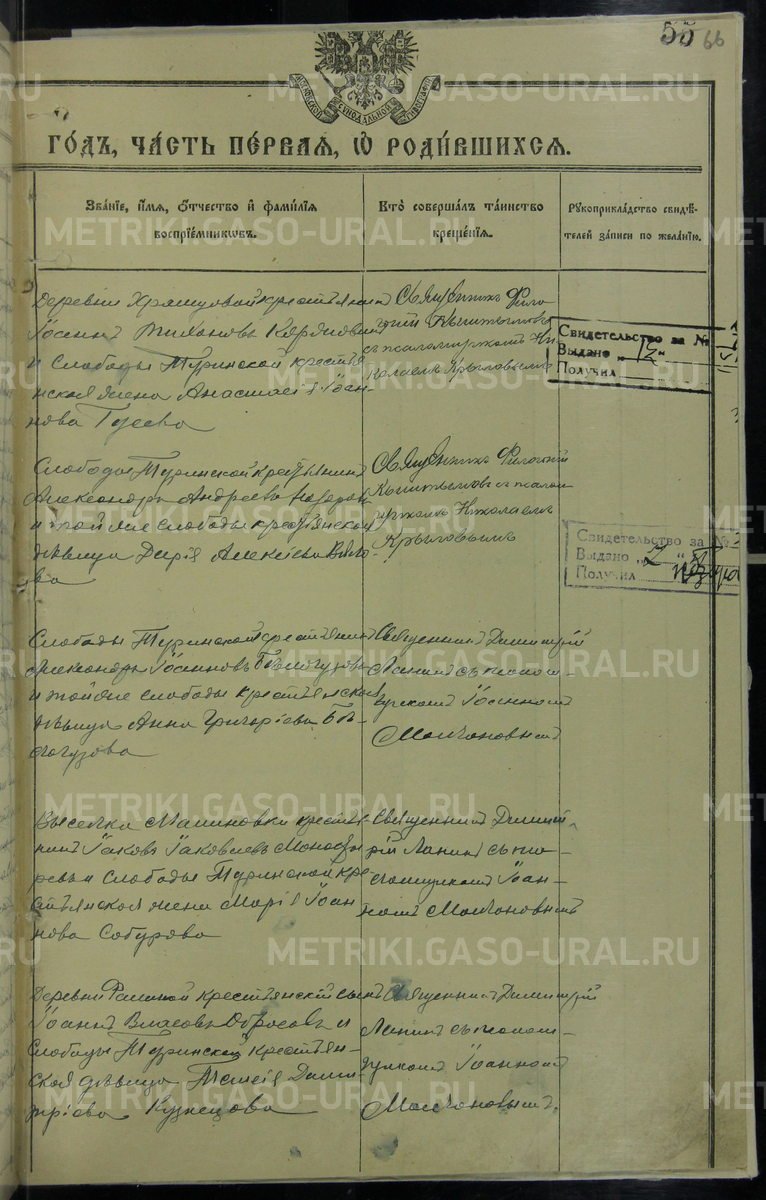 55 66
МОСКОВСКОЙ СѴНОДАЛЬНОЙ ТИПОГРАФІИ
го́дъ, ча́сть пе́рвая, ѡ҆ роди́вшихсѧ.
Зва́нїе, и҆́мѧ, ѻ҆́тчество и҆ фами́лїѧ
воспрїе́мникѡвъ.
Кто̀ соверша́лъ та́инство
креще́нїѧ.
Рꙋкоприкла́дство свидѣ́-
телей за́писи по жела́нїю.
Деревни Храмцовой крестьянин
Іоаннъ
и Слободы Туринской крестья
нская жена Анастасія Іоан
нова Гусева
Священникъ Фило
гоній Кыштымовъ
съ псаломщикомъ Ни
колаемъ Крыловымъ
Свидетельство за №
Выдано „ 12 “
Получил
Слободы Туринской крестьянинъ
Александръ Андреевъ
и той же слободы крестьянская
дѣвица Дарія Алексіева
ва
Священникъ Филогоній
Кыштымовъ съ псалом
щикомъ Николаемъ
Крыловымъ
Свидетельство за №
Выдано „ 2 “
Получил
Слободы Туринской крестьянинъ
Александръ Іоанновъ Бѣлогузовъ
и той же слободы крестьянская
дѣвица Анна Григоріева Бѣ-
логузова
Священникъ Димитрій
Ляпинъ съ псалом-
щикомъ Іоанномъ
Молчановымъ
Выселка Малиновки крестья-
нинъ Іаковъ Іаковлевъ
и Слободы Туринской кре-
стьянская жена Марія Іоан
нова Сабурова
Священникъ Димит-
рій Ляпинъ съ пса-
ломщикомъ Іоан-
номъ Молчановымъ
Деревни крестьянскій сынъ
Іоаннъ Власовъ Абросовъ и
Слободы Туринской крестьян-
ская дѣвица Таисія Дими
тріева Кузнецова
Священникъ Димитрій
Ляпинъ съ псалом-
щикомъ Іоанномъ
Молчановымъ.
METRIKI.GASO-URAL.RU